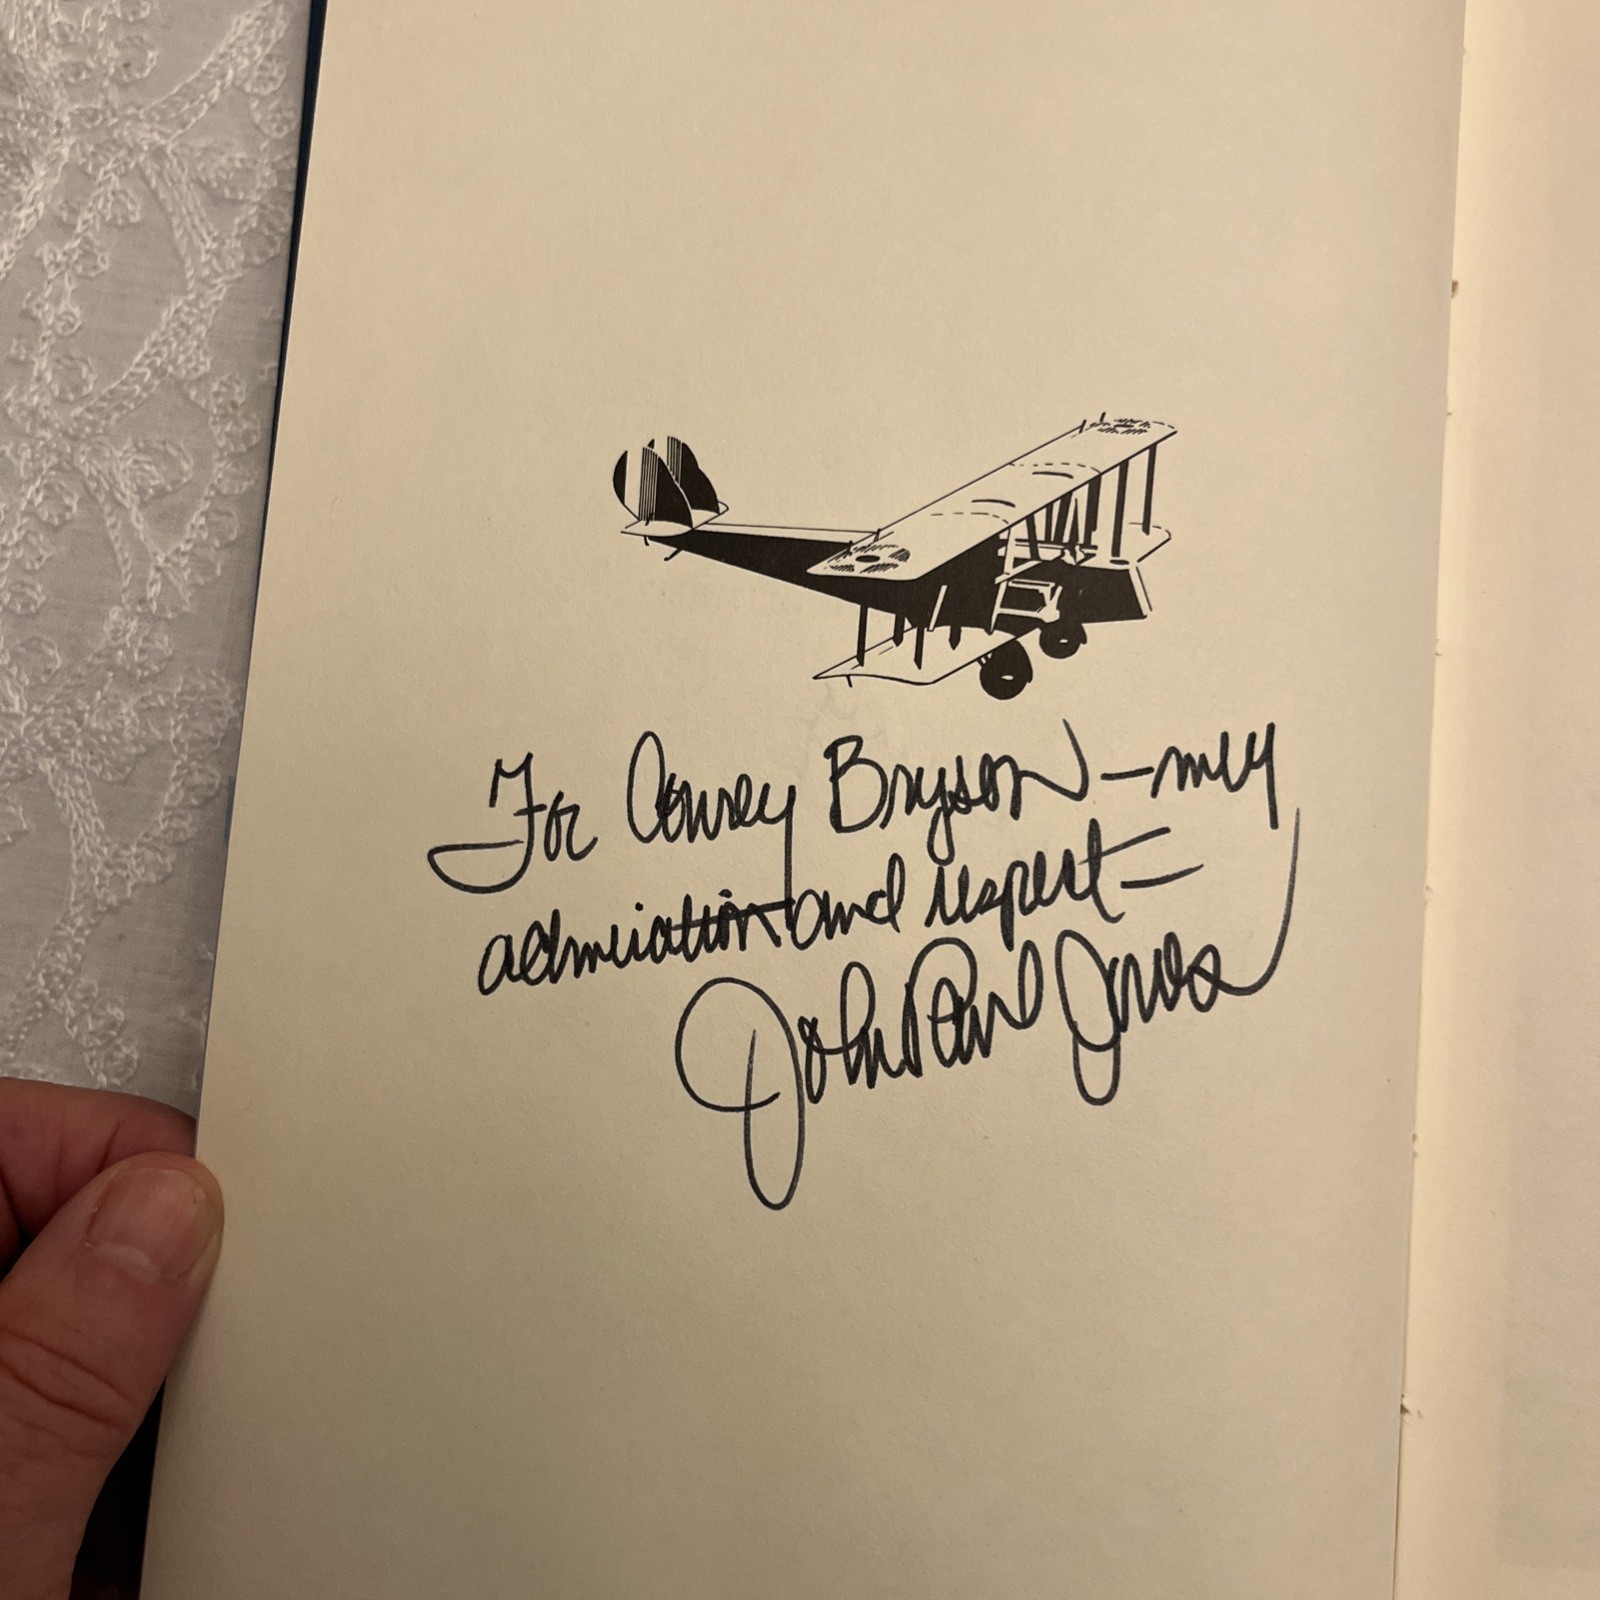 For Conrey Bryson — my
admiration and respect —
John Paul Jones